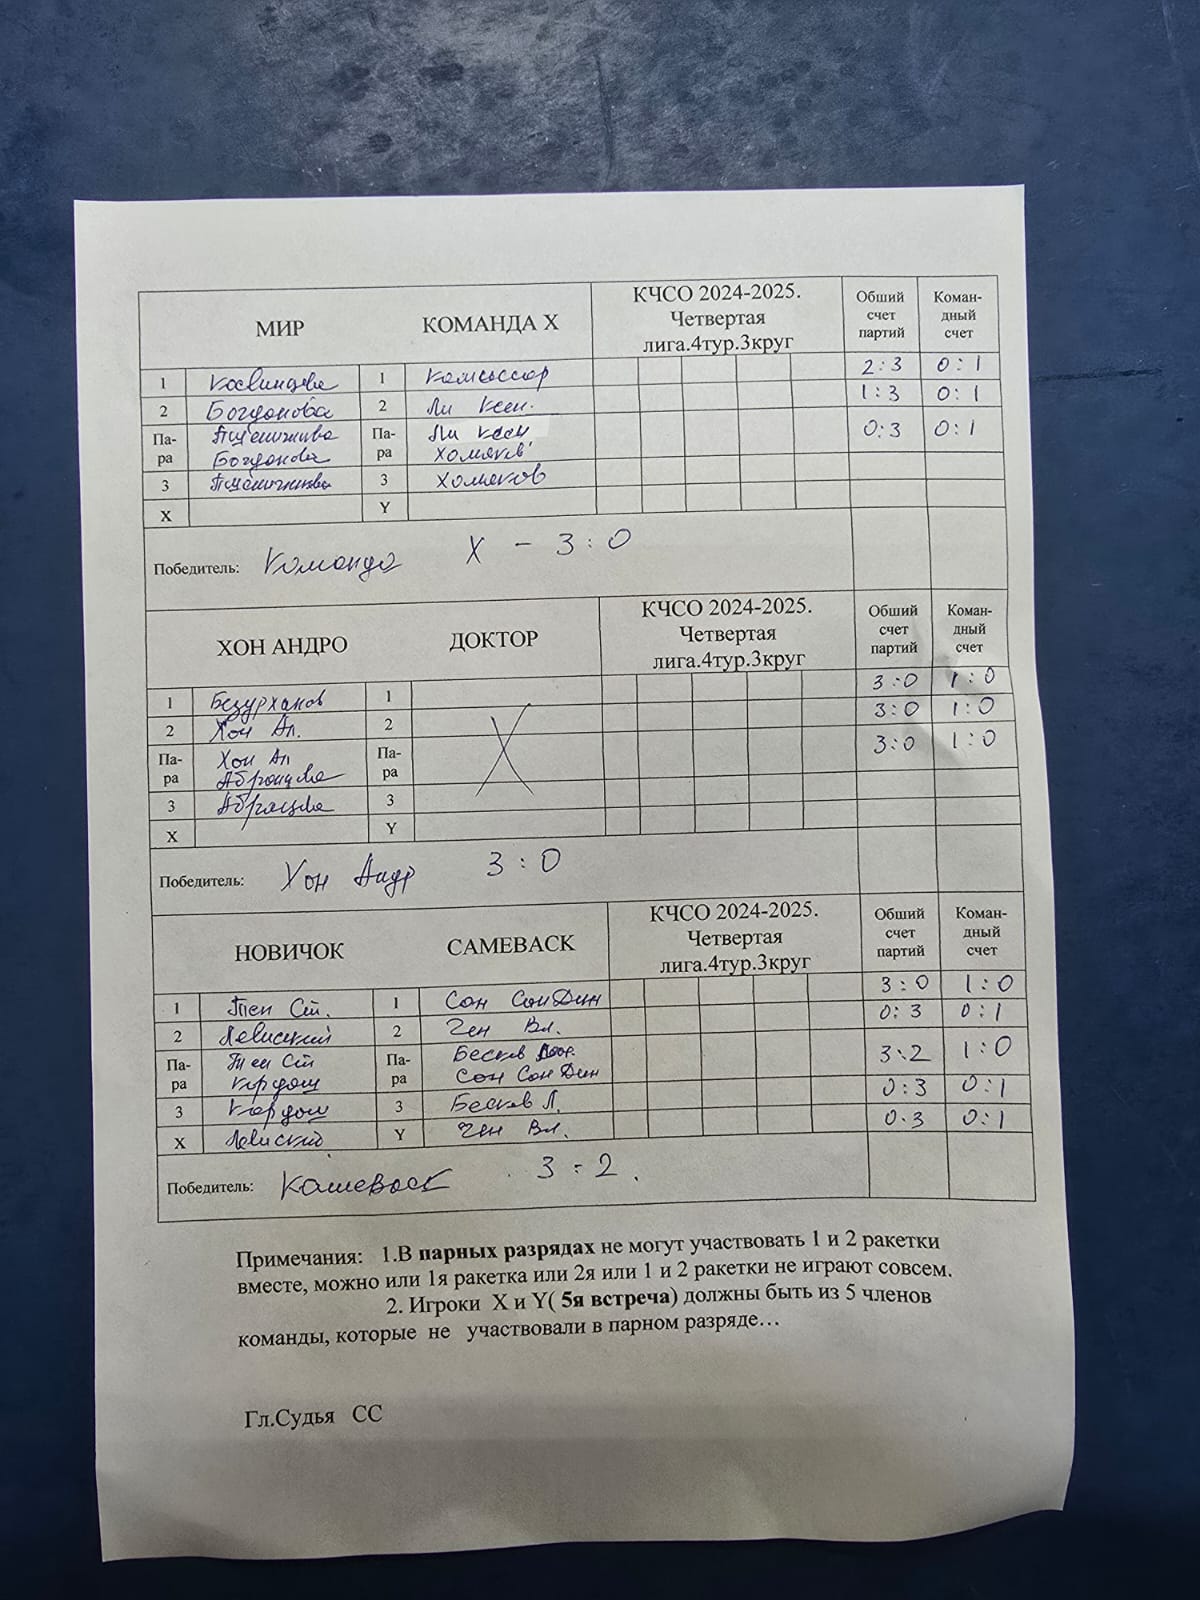 МИР КОМАНДА Х КЧСО 2024-2025. Четвертая лига.4тур.3круг Обший счет партий Коман-дный счет
1 1 2:3 0:1
2 Богданова 2 Ли Ксен. 1:3 0:1
Па-ра Па-ра Ли Ксен 0:3 0:1
Богданова Хомяков
3 3 Хомяков
Х Y
Победитель: Команда Х - 3:0
ХОН АНДРО ДОКТОР КЧСО 2024-2025. Четвертая лига.4тур.3круг Обший счет партий Коман-дный счет
1 Безурханов 1 3:0 1:0
2 Хон Ал. 2 3:0 1:0
Па-ра Хон Ал Па-ра 3:0 1:0
3 3
Х Y
Победитель: Хон Андр 3:0
НОВИЧОК САМЕВАСК КЧСО 2024-2025. Четвертая лига.4тур.3круг Обший счет партий Коман-дный счет
1 Тен Ст. 1 Сон Сон Дин 3:0 1:0
2 Левиский 2 Ген Вл. 0:3 0:1
Па-ра Тен Ст Па-ра Бесков 3:2 1:0
Кардаш Сон Сон Дин
3 Кардаш 3 Бесков Л. 0:3 0:1
Х Левиский Y Ген Вл. 0:3 0:1
Победитель: Камеваск 3:2.
Примечания: 1.В парных разрядах не могут участвовать 1 и 2 ракетки
вместе, можно или 1я ракетка или 2я или 1 и 2 ракетки не играют совсем.
2. Игроки Х и Y( 5я встреча) должны быть из 5 членов
команды, которые не участвовали в парном разряде…
Гл.Судья СС